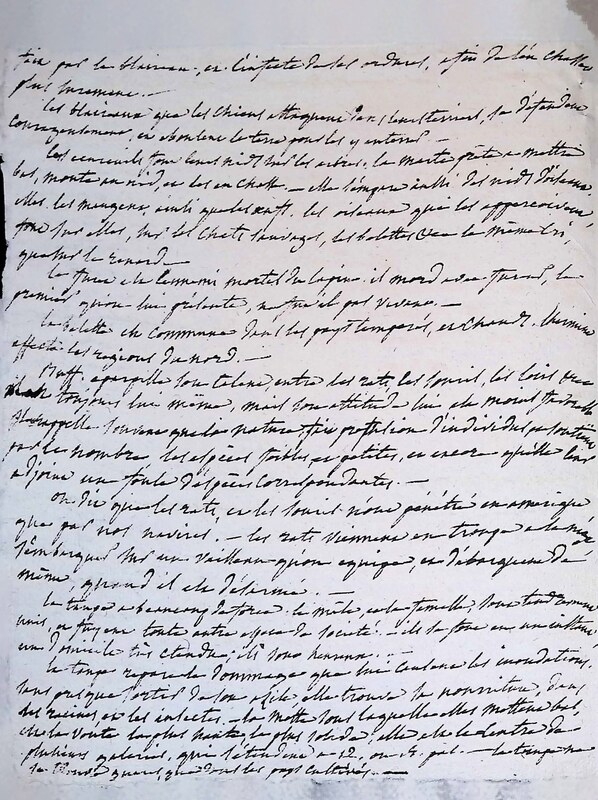 par le blaireau, en l'infecte de ses ordures, afin de l'en chasser
plus surement. —
les blaireaux que les chiens attaquent dans leurs terriers, se défendent
courageusement, en éboulent la terre pour les y enterrer. —
Les ecureuils font leurs nids sur les arbres. la marte prête a mettre
bas, monte au nid, et les en chasse. — elle s'empare aussi des nids d'oiseaux
elles les mangent, ainsi que les œufs. les oiseaux qui les apperçoivent,
font sur elles, sur les chats sauvages, les belettes &ca le même cri,
que sur le renard. —
le furet est l'ennemi mortel du lapin. il mord avec fureur, le
premier qu'on lui présente, ne fut il pas vivant. —
la belette est commune dans les pays temperés, et chauds. l'hermine
affecte les regions du nord. —
Buff. eparpille son talent entre les rats, les souris, les loirs &ca
toujours lui même, mais son attitude
rappelle souvent que la nature, par profusion d'individus, a soutenu
par le nombre les espèces foibles, et petites, et encore qu'elle leur
adjoint une foule d'espèces correspondantes. —
on dit que les rats, et les souris n'ont pénétré en amerique
que par nos navires. — les rats viennent en troupe a la
s'embarquer sur un vaisseau qu'on equipe, et débarquent de
même, quand il est désarmé. —
la taupe a beaucoup de force. le mâle, et la femelle, sont tendrement
unis, et fuyent toute autre espece de societé. — ils se font en un
un domicile très etendu; ils sont heureux. —
la taupe repare le dommage que lui causent les inondations.
sans presque sortir de son asile elle trouve sa nourriture, dans
les racines, et les insectes. — la motte sous laquelle elles mettent bas,
est la voute la plus haute, la plus solide. elle est le centre de
plusieurs galeries, qui s'étendent a 12, ou 15 pas. — la taupe ne
se trouve gueres, que dans les pays cultivés. —